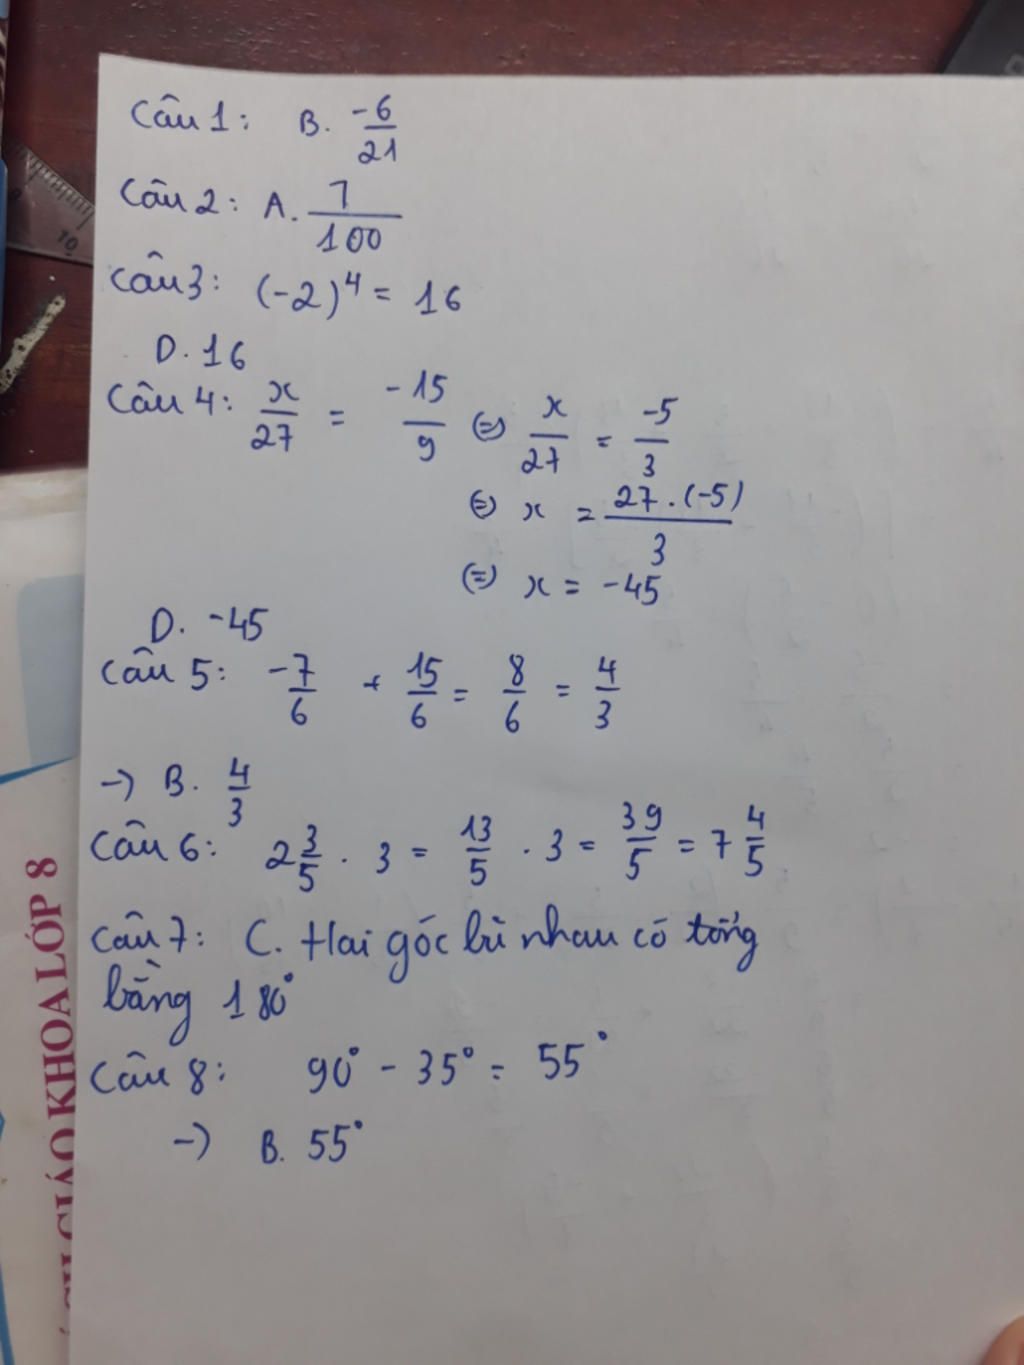 Câu 1: B. -6/21
Câu 2: A. 7/100
Câu 3: (-2)^4 = 16
D. 16
Câu 4: x/27 = -15/9 ⇔ x/27 = -5/3
⇔ x = 27.(-5)/3
⇔ x = -45
D. -45
Câu 5: -7/6 + 15/6 = 8/6 = 4/3
→ B. 4/3
Câu 6: 2 3/5 . 3 = 13/5 . 3 = 39/5 = 7 4/5
Câu 7: C. Hai góc bù nhau có tổng
bằng 180°
Câu 8: 90° - 35° = 55°
→ B. 55°
GIÁO KHOA LỚP 8
10